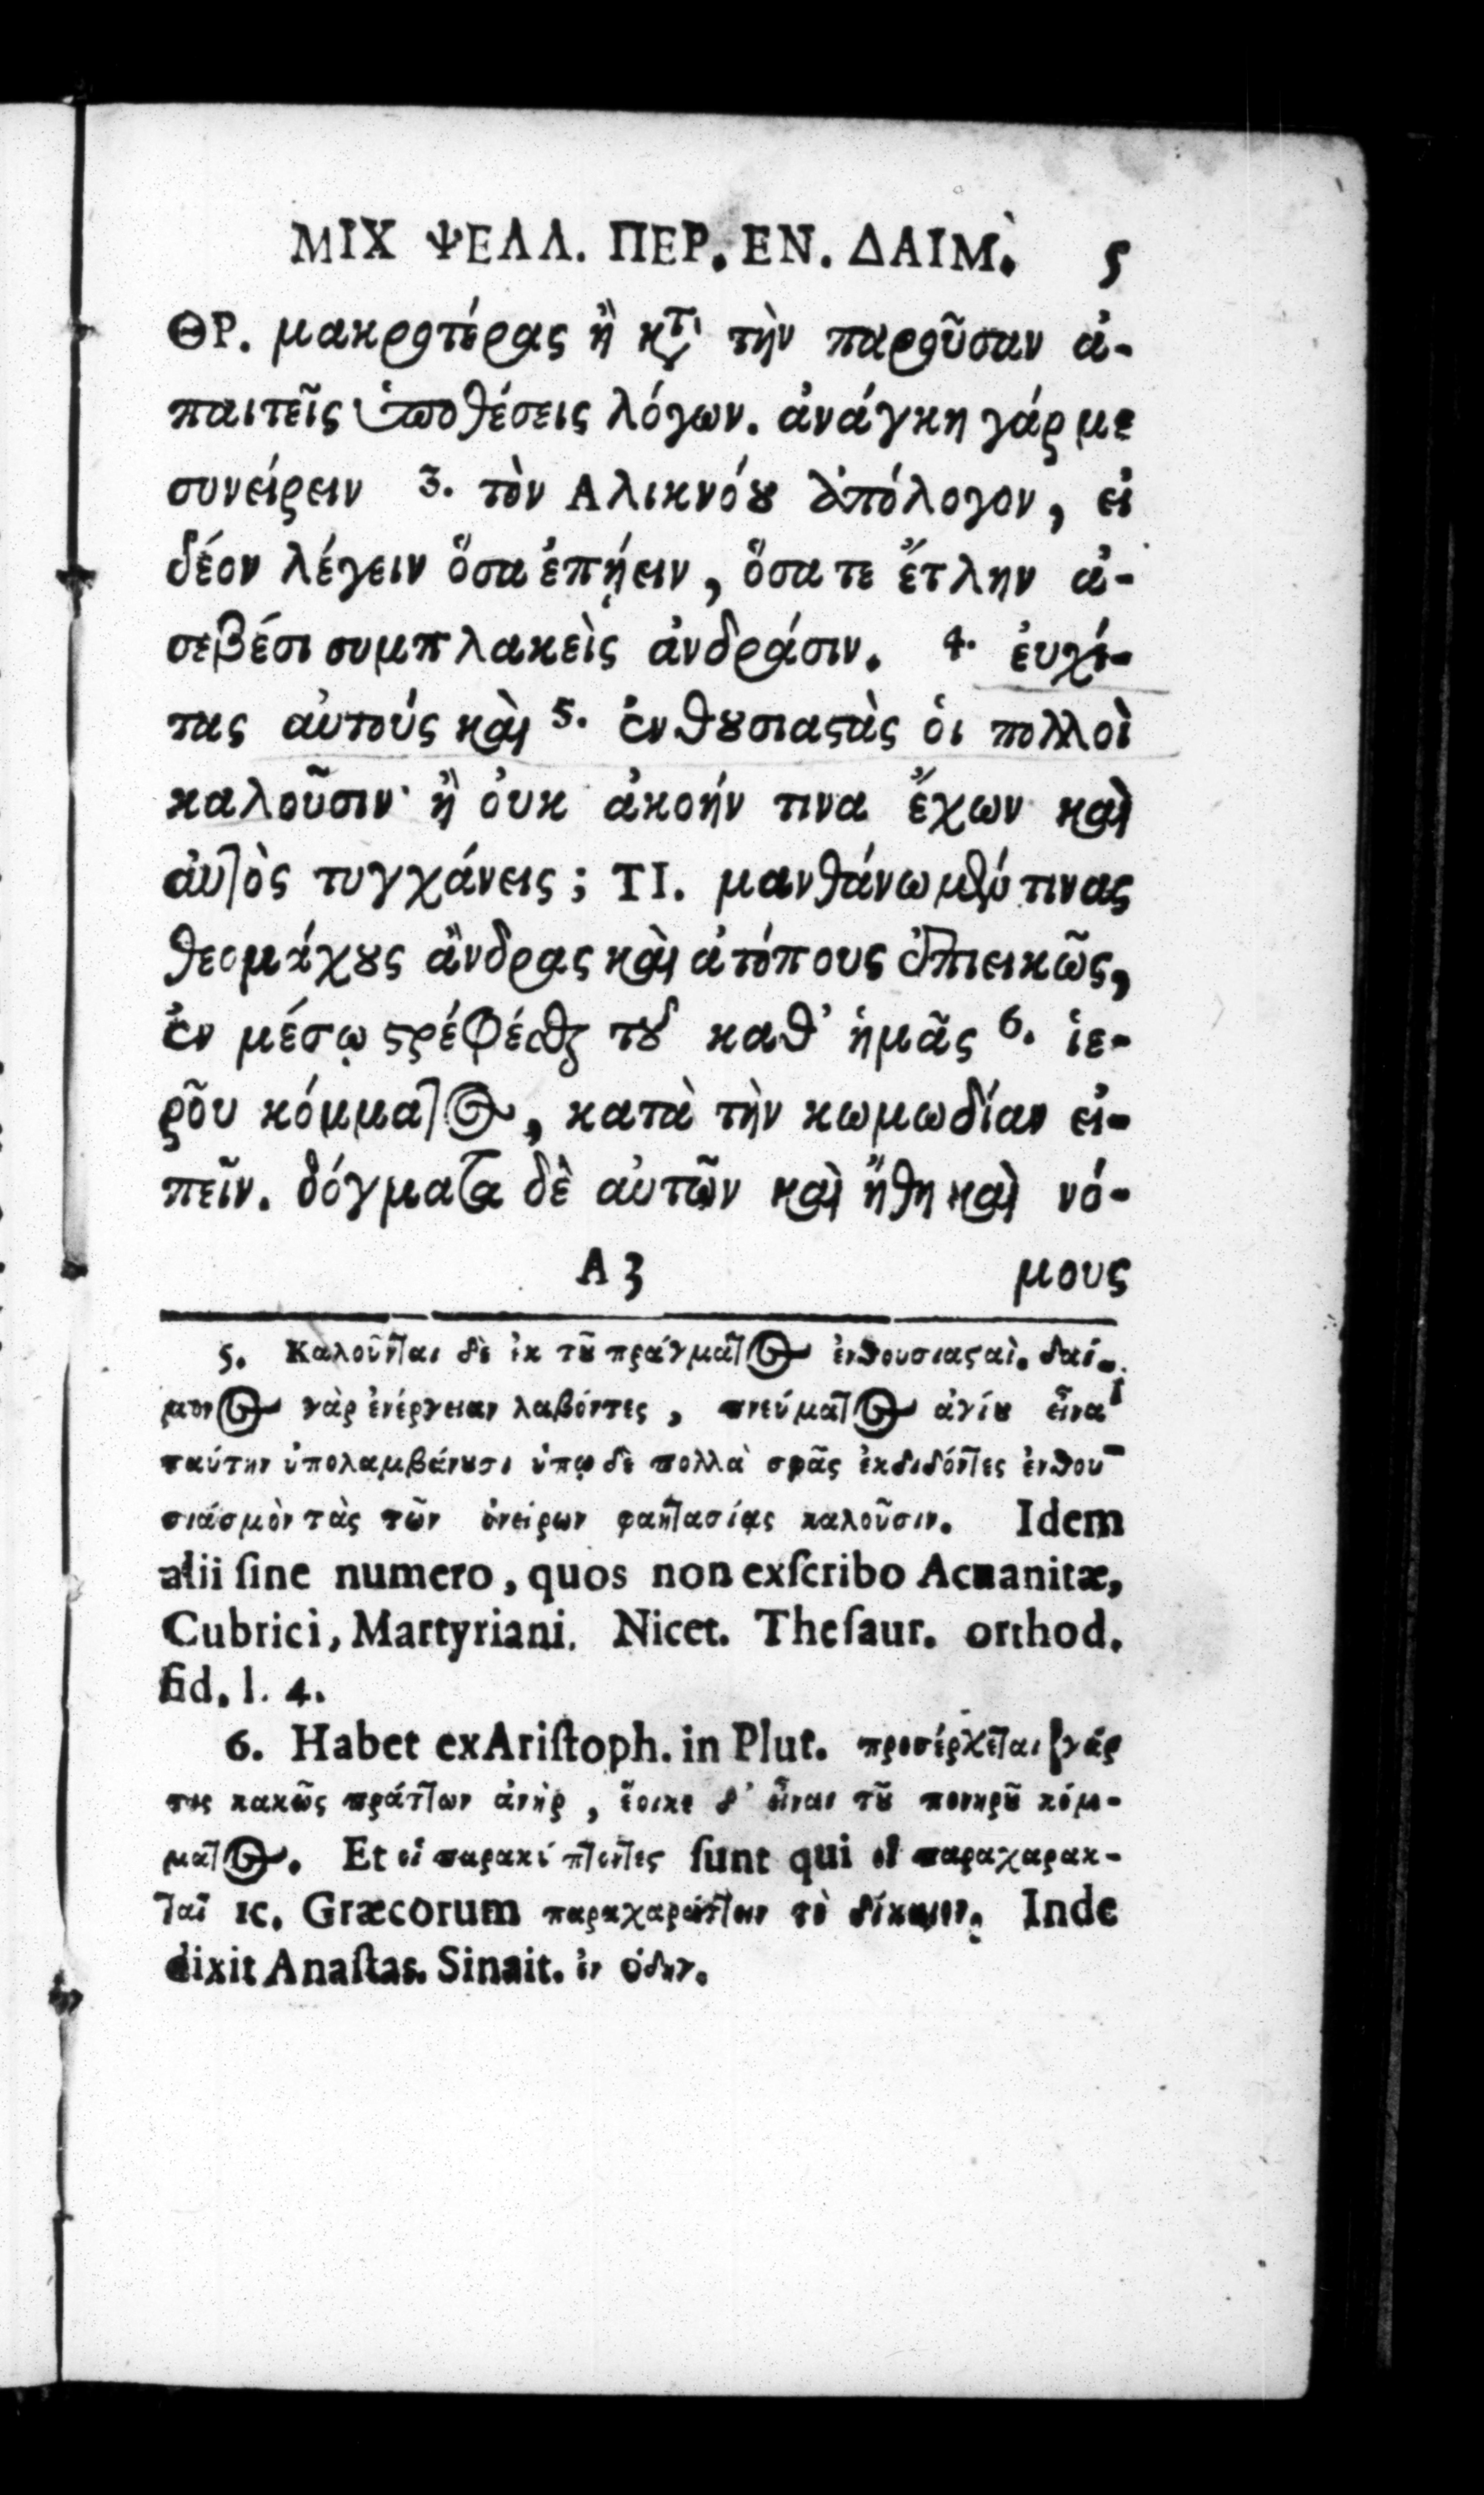 ΜΙΧ ΨΕΛΛ. ΠΕΡ. ΕΝ. ΔΑΙΜ. 5
ΘΡ. μακροτέρας ἢ κτ̀ τὴν παροῦσαν ἀ-
παιτεῖς ὑποθέσεις λόγων. ἀνάγκη γάρ με
συνείρειν 3. τὸν Αλικνόȣ ἀπόλογον, εἰ
δέον λέγειν ὅσα ἐπῄειν, ὅσα τε ἔτλην ἀ-
σεβέσι συμπλακεὶς ἀνδράσιν. 4. ἐυχί-
τας αὐτούς καὶ 5. ἐνθȣσιαϛὰς ὁι πολλοὶ
καλοῦσιν· ἢ ὀυκ ἀκοήν τινα ἔχων καὶ
αὐτὸς τυγχάνεις; ΤΙ. μανθάνω μὲν τινας
θεομάχȣς ἄνδρας καὶ ἀτόπους ἐπιεικῶς,
ἐν μέσῳ ϛρέφέσθαι τȣ͂ καθ' ἡμᾶς 6. ἱε-
ρο͂υ κόμματος, κατὰ τὴν κωμωδίαν εἰ-
πεῖν. δόγματα δὲ αὐτῶν καὶ ἤθη καὶ νό-
Α 3 μους
5. Καλοῦνται δὲ ἐκ τȣ͂ πράγματος ἐνθουσιαϛαὶ. δαί-
μονος γὰρ ἐνέργειαν λαβόντες, πνεύματος ἁγίȣ εἶναι
ταύτην ὑπολαμβάνȣσι ὑπῳ δὲ πολλὰ σφᾶς ἐκδιδόντες ἐνθου-
σιάσμὸν τὰς τῶν ὀνείρων φαντασίας καλοῦσιν. Idem
alii ſine numero, quos non exſcribo Acuanitæ,
Cubrici, Martyriani. Nicet. Theſaur. orthod.
fid. l. 4.
6. Habet ex Ariſtoph. in Plut. προσέρχεται γάρ
τις κακῶς πράττων ἀνὴρ, ἔοικε δ' εἶναι τȣ͂ πονηρȣ͂ κόμ-
ματος. Et οἱ παρακόπτοντες ſunt qui οἱ παραχαρακ-
ταὶ ic. Græcorum παραχαράττειν τὸ δίκαιον. Inde
dixit Anaſtas. Sinait. ἐν ὁδηγ.